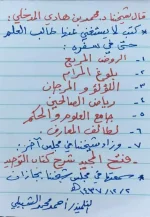 قال شيخنا د. محمد بن هادي المدخلي:
* كتب لا يستغني عنها طالب العلم
حتى في سفره:
١- الروض المربع
٢- بلوغ المرام
٣- اللؤلؤ والمرجان
٤- رياض الصالحين
٥- جامع العلوم والحكم
٦- لطائف المعارف
* وزاد شيخنا في مجلس آخر:
٧- فتح المجيد شرح كتاب التوحيد
* في مجلس شيخنا بجازان
١٤٣٧/١٢/٢ هـ
التلميذ/ أحمد محمد الشبيلي